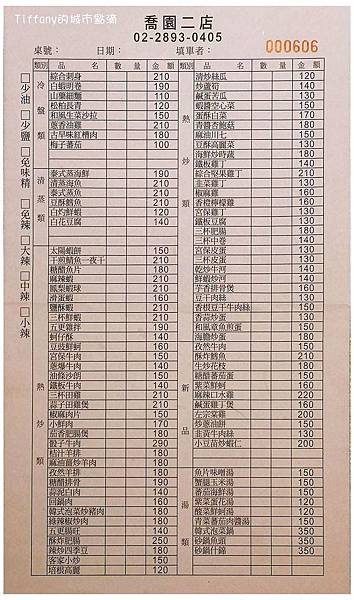 Tiffany的城市點滴
喬園二店
02-2893-0405
桌號： 日期： 填單者： 000606
類別 品名 數量 金額 類別 品名 數量 金額
□少油 □少鹽 □免味精 □免辣 □大辣 □中辣 □小辣
冷盤類
綜合刺身 210
白蝦明卷 190
山藥細麵 110
松柏長青 120
和風生菜沙拉 150
蔥香油雞 210
古早味紅糟肉 180
梅子蕃茄 100
清蒸類
泰式蒸海鮮 190
清蒸海魚 210
泰式蒸魚 210
豆酥鱈魚 210
白灼鮮蝦 120
白花豆腐 140
熱炒類
太陽蝦餅 150
干煎鯖魚一夜干 210
糖醋魚片 180
麻辣蝦 210
鳳梨蝦球 210
滑蛋蝦 160
鹽酥蝦 210
三杯鮮蝦 210
五更雞胖 190
蚵仔酥 140
豆豉鮮蚵 160
宮保牛肉 150
蔥爆牛肉 140
油條沙朗 150
鐵板牛肉 140
三杯田雞 210
蒜子田雞煲 210
椒麻肉片 150
小鮮肉 170
茄香肥腸煲 180
骰子牛肉 290
桔汁羊排 180
麻油薑炒羊肉 180
孜然羊排 180
糖醋排骨 190
蒜泥白肉 140
回鍋肉 160
韓式泡菜炒豬肉 180
綠辣椒炒肉 180
五更腸旺 140
酥炸肥腸 250
辣炒四季豆 180
客家小炒 150
培根高麗 120
熱炒類
清炒絲瓜 120
炒蘆筍 140
鹹蛋苦瓜 130
蝦醬空心菜 150
蛋酥白菜 170
青醬杏鮑菇 180
麻油川七 150
豆酥高麗菜 130
海鮮炒時蔬 180
鐵板雞丁 140
綜合堅果雞丁 210
韭菜雞丁 130
椒麻雞 160
香橙檸檬雞 160
宮保雞丁 130
鐵板豆腐 130
三杯肥腸 180
三杯中卷 140
宮保皮蛋 130
三杯皮蛋 130
乾炒牛河 140
鮮蝦炒河 140
芋香排骨煲 160
豆干肉絲 130
香根豆干牛肉絲 150
香蒜炒蛋 130
和風章魚煎蛋 150
海膽炒蛋 180
新品
孜然牛肉 150
酥炸鱈魚 210
生炒花枝 180
糖醋蕃茄蛋 150
紫菜鮮蚵 160
麻辣口水雞 220
鹹蛋雞丁煲 160
左宗棠雞 200
炒蔥油餅 150
韭黃牛肉絲 130
小豆苗炒蝦仁 200
湯類
魚片味噌湯 150
蟹腿玉米湯 150
蕃茄海鮮湯 150
紫菜蛋花湯 120
酸菜鮮蚵湯 120
青蕃茄肉醬湯 150
韓式泡菜鍋 350
砂鍋魚頭 350
砂鍋什錦 350